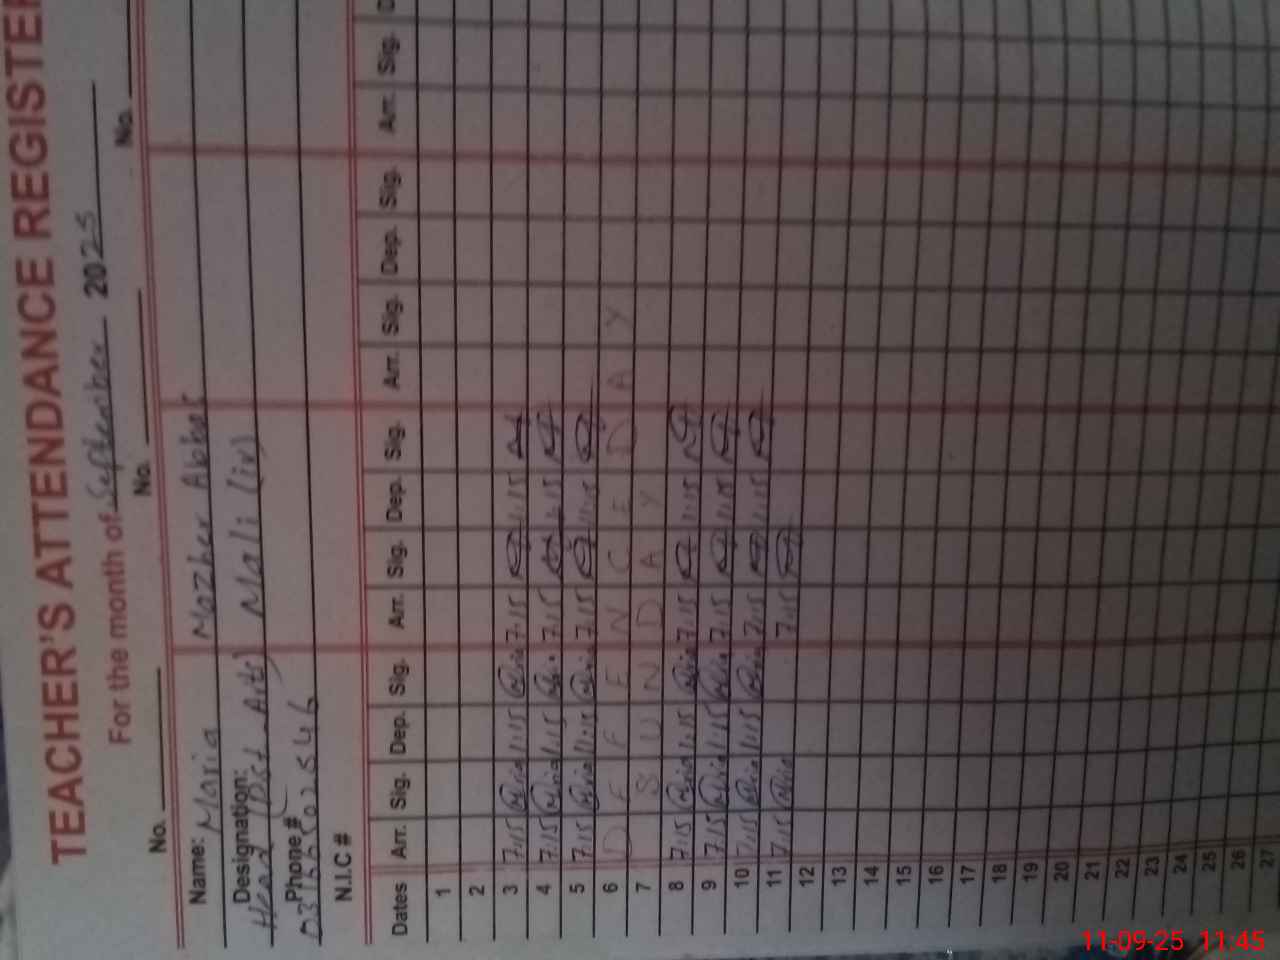 TEACHER'S ATTENDANCE REGISTER
For the month of September 2025
No. No. No. No.
Name: Maria Mazher Abbas
Designation: Head (Pst Arts) Mali (iv)
Phone #
N.I.C #
Dates Arr. Sig. Dep. Sig. Arr. Sig. Dep. Sig. Arr. Sig. Dep. Sig. Arr. Sig.
1
2
3 7:15 1:15 7:15 1:15
4 7:15 1:15 7:15 1:15
5 7:15 11:15 7:15 11:15
6 D E F E N C E D A Y
7 S U N D A Y
8 7:15 1:15 7:15 1:15
9 7:15 1:15 7:15 1:15
10 7:15 1:15 7:15 1:15
11 7:15 7:15
12
13
14
15
16
17
18
19
20
21
22
23
24
25
26
27
11-09-25 11:45